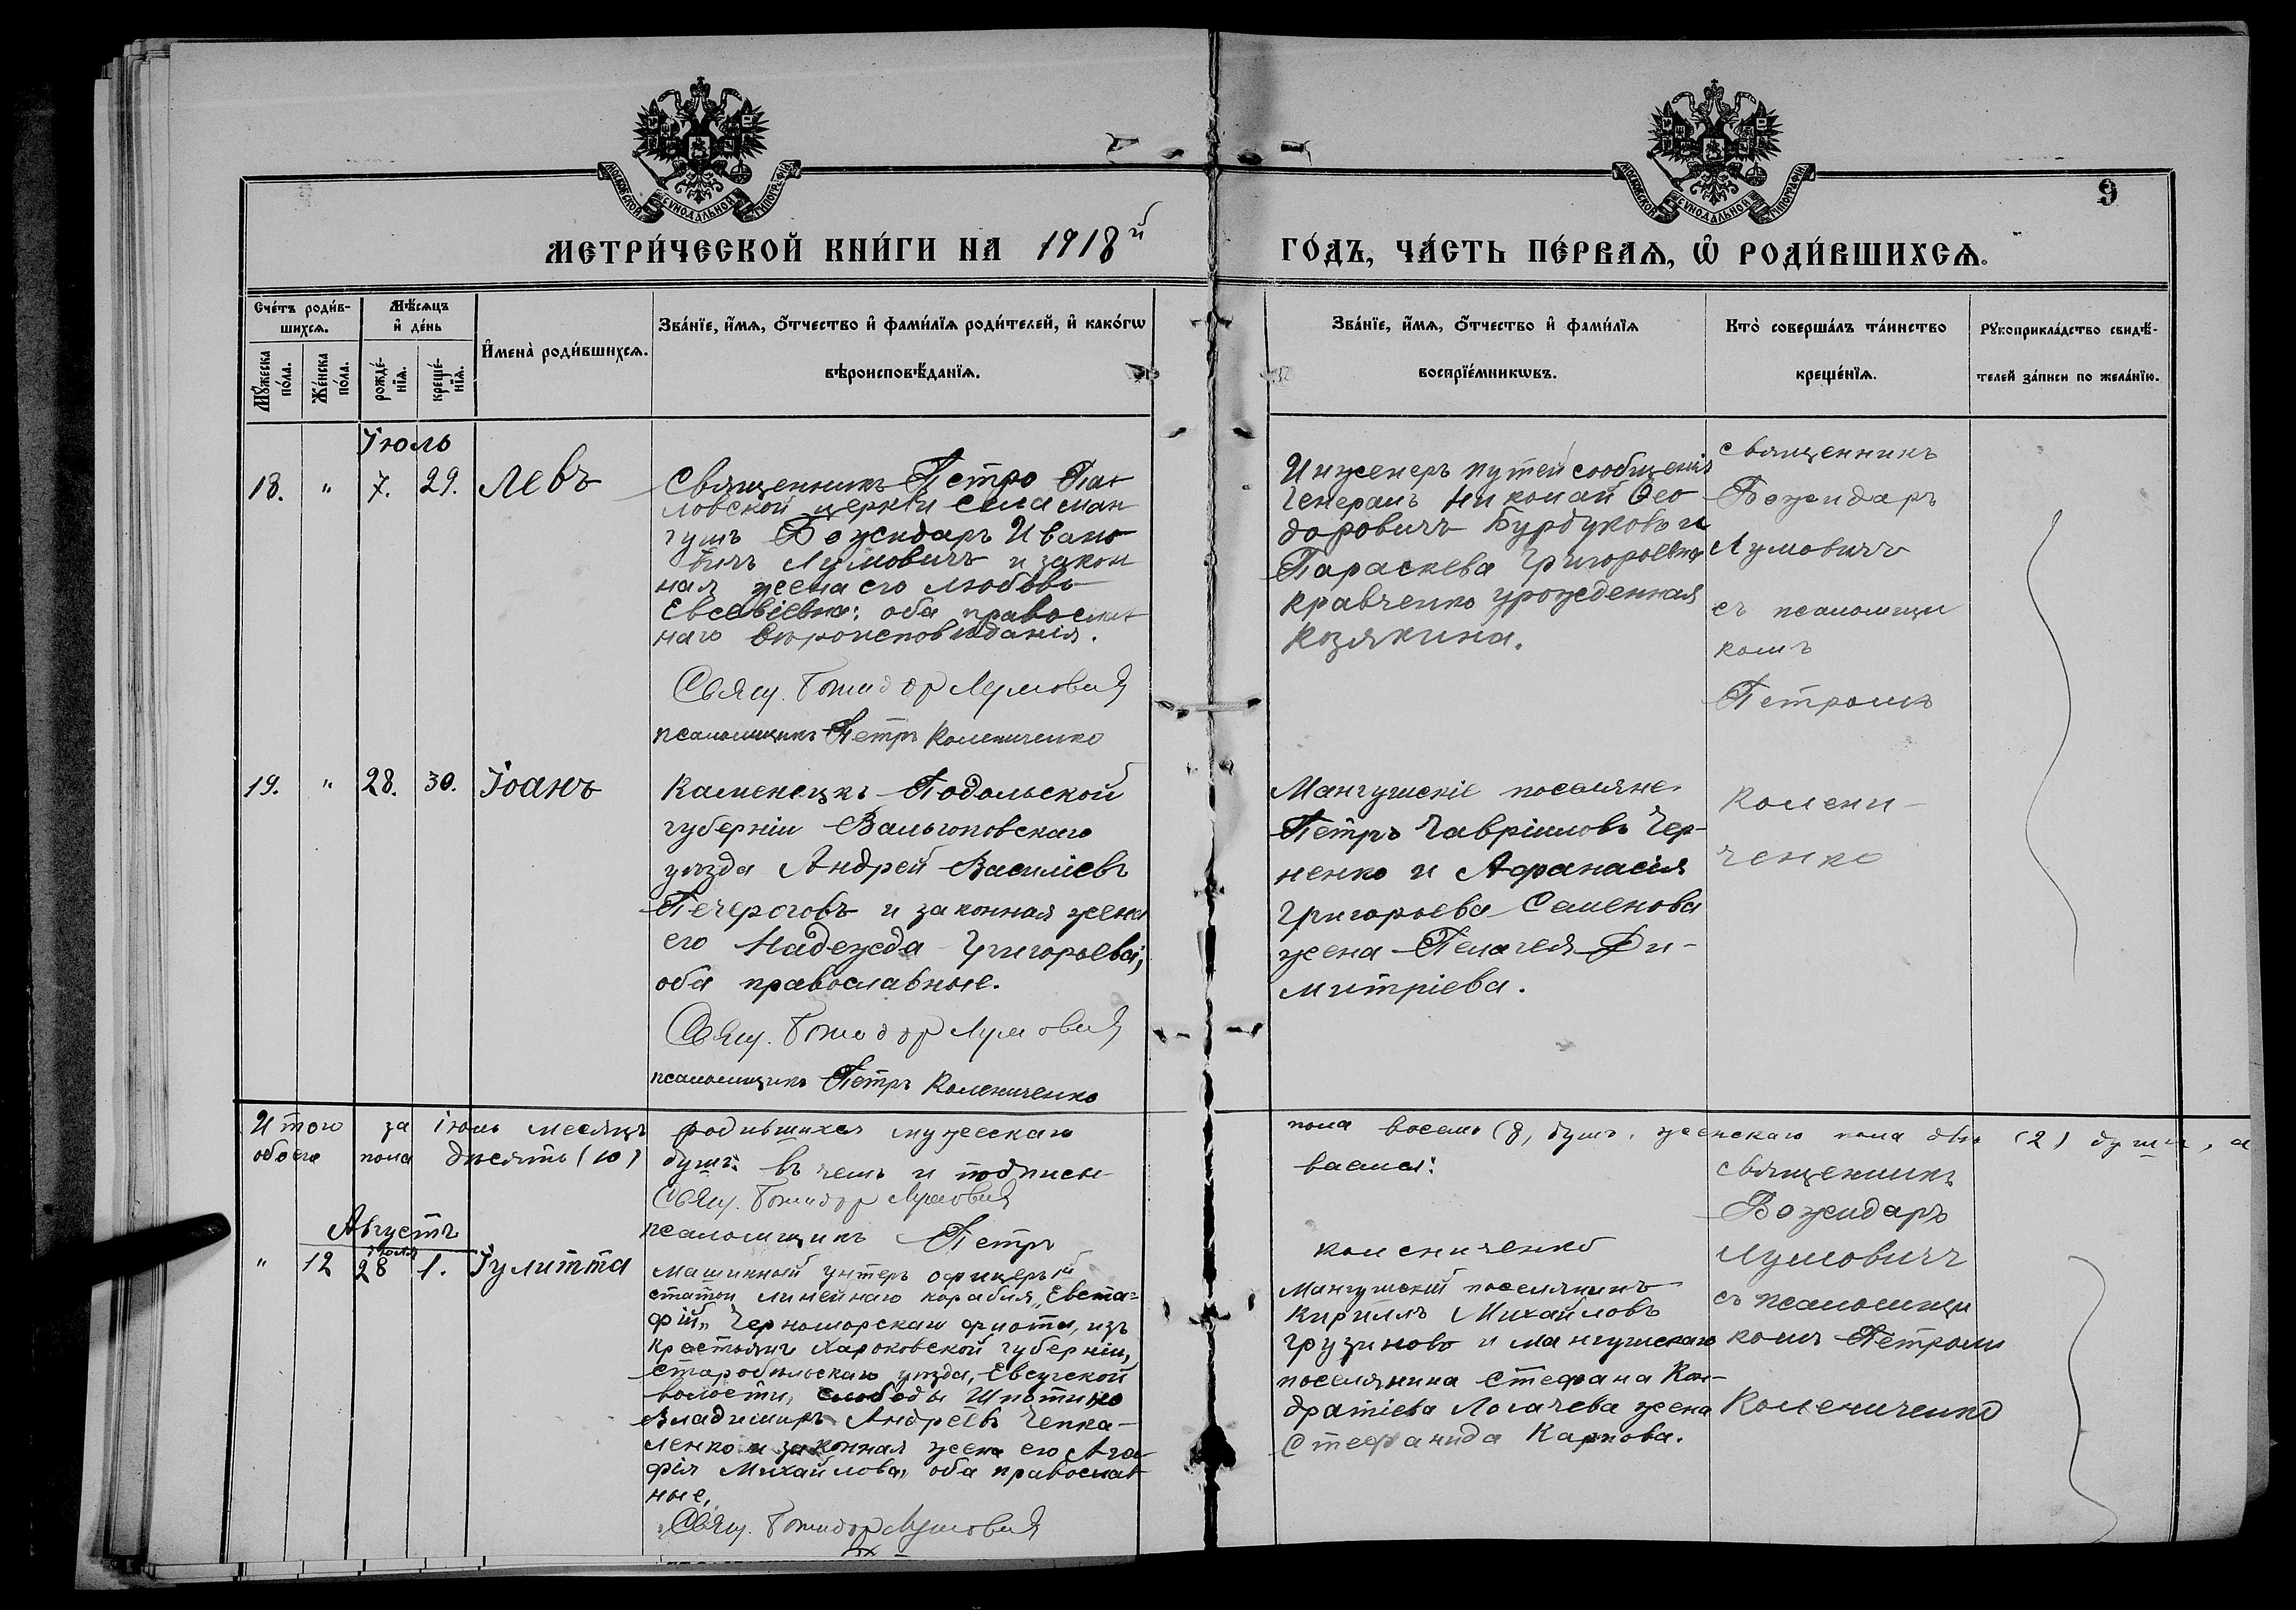 МОСКОВСКОЙ СУНОДАЛЬНОЙ ТИПОГРАФІИ
МОСКОВСКОЙ СУНОДАЛЬНОЙ ТИПОГРАФІИ
9
МЕТРИ́ЧЕСКОЙ КНИ́ГИ НА 1918й
ГО́ДЪ, ЧА́СТЬ ПЕ́РВАѦ, Ѿ РОДИ́ВШИХСѦ.
Сче́тъ роди́в-
шихсѧ.
Мꙋжеска
по́ла.
Же́нска
по́ла.
Мѣ́сѧцъ
и҆ де́нь
рожде́-
нїѧ.
креще́-
нїѧ.
И҆мена̀ роди́вшихсѧ.
Зва́нїе, и҆́мѧ, ѻ҆́тчество и҆ фами́лїѧ роди́телей, и҆ како́гѡ
вѣроисповѣ́данїѧ.
Зва́нїе, и҆́мѧ, ѻ҆́тчество и҆ фами́лїѧ
воспрїе́мникѡвъ.
Кто̀ соверша́лъ та́инство
креще́нїѧ.
Рꙋкоприкла́дство свидѣ́-
телей за́писи по жела́нїю.
Іюль
18. " 7. 29. Левъ
Священникъ Петро Пав
ловской церкви села Ман
гушъ Божидаръ Ивано
вичъ Лумовичъ и закон
ная жена его Любовь
Евсевіевна: оба православ
наго вѣроисповѣданія.
Свящ. Божидар Лумовић
псаломщикъ Петръ Колениченко
Инженеръ путей сообщенія
Генералъ Николай Ѳео
доровичъ Бурдуковъ и
Параскева Григорьевна
Кравченко урожденная
Козякина.
священникъ
Божидаръ
Лумовичъ
съ псаломщи
комъ
Петромъ
19. " 28. 30. Іоанъ
Каменецкъ Подольской
губерніи
уѣзда Андрей Василіевъ
Печероговъ и законная жена
его Надежда Григорьева;
оба православные.
Свящ. Божидар Лумовић
псаломщикъ Петръ Колениченко
Мангушскіе поселяне
Петръ Гавріиловъ Чер-
ненко и Афанасія
Григорьева Семенова
жена Пелагея Ди-
митріева.
Колени-
ченко
Итого за іюль месяцъ родившихся мужескаго пола восемь (8) душъ, женскаго пола двѣ (2) души, а
обоего пола десять (10) душъ: въ чемъ и подписы ваемся:
Свящ. Божидар Лумовић
псаломщикъ Петръ Колениченко
Августъ
іюля
" 12 28 1. Іулитта
Машинный унтеръ офицеръ
статьи линейнаго корабля „Евста-
фій„ Черноморскаго флота, изъ
крестьянъ Харьковской губерніи,
Старобѣльскаго уѣзда, Евсугской
волости, слободы Шпотино
Владимиръ Андреевъ Чепка-
ленко и законная жена его Ага-
фія Михайлова, оба православ
ные.
Свящ. Божидар Лумовић
Мангушскій поселянинъ
Кириллъ Михайловъ
Грузиновъ и мангушскаго
поселянина Стефана Кон-
дратіева Логачева жена
Стефанида Карпова.
священникъ
Божидаръ
Лумовичъ
съ псаломщи
комъ Петромъ
Колениченко